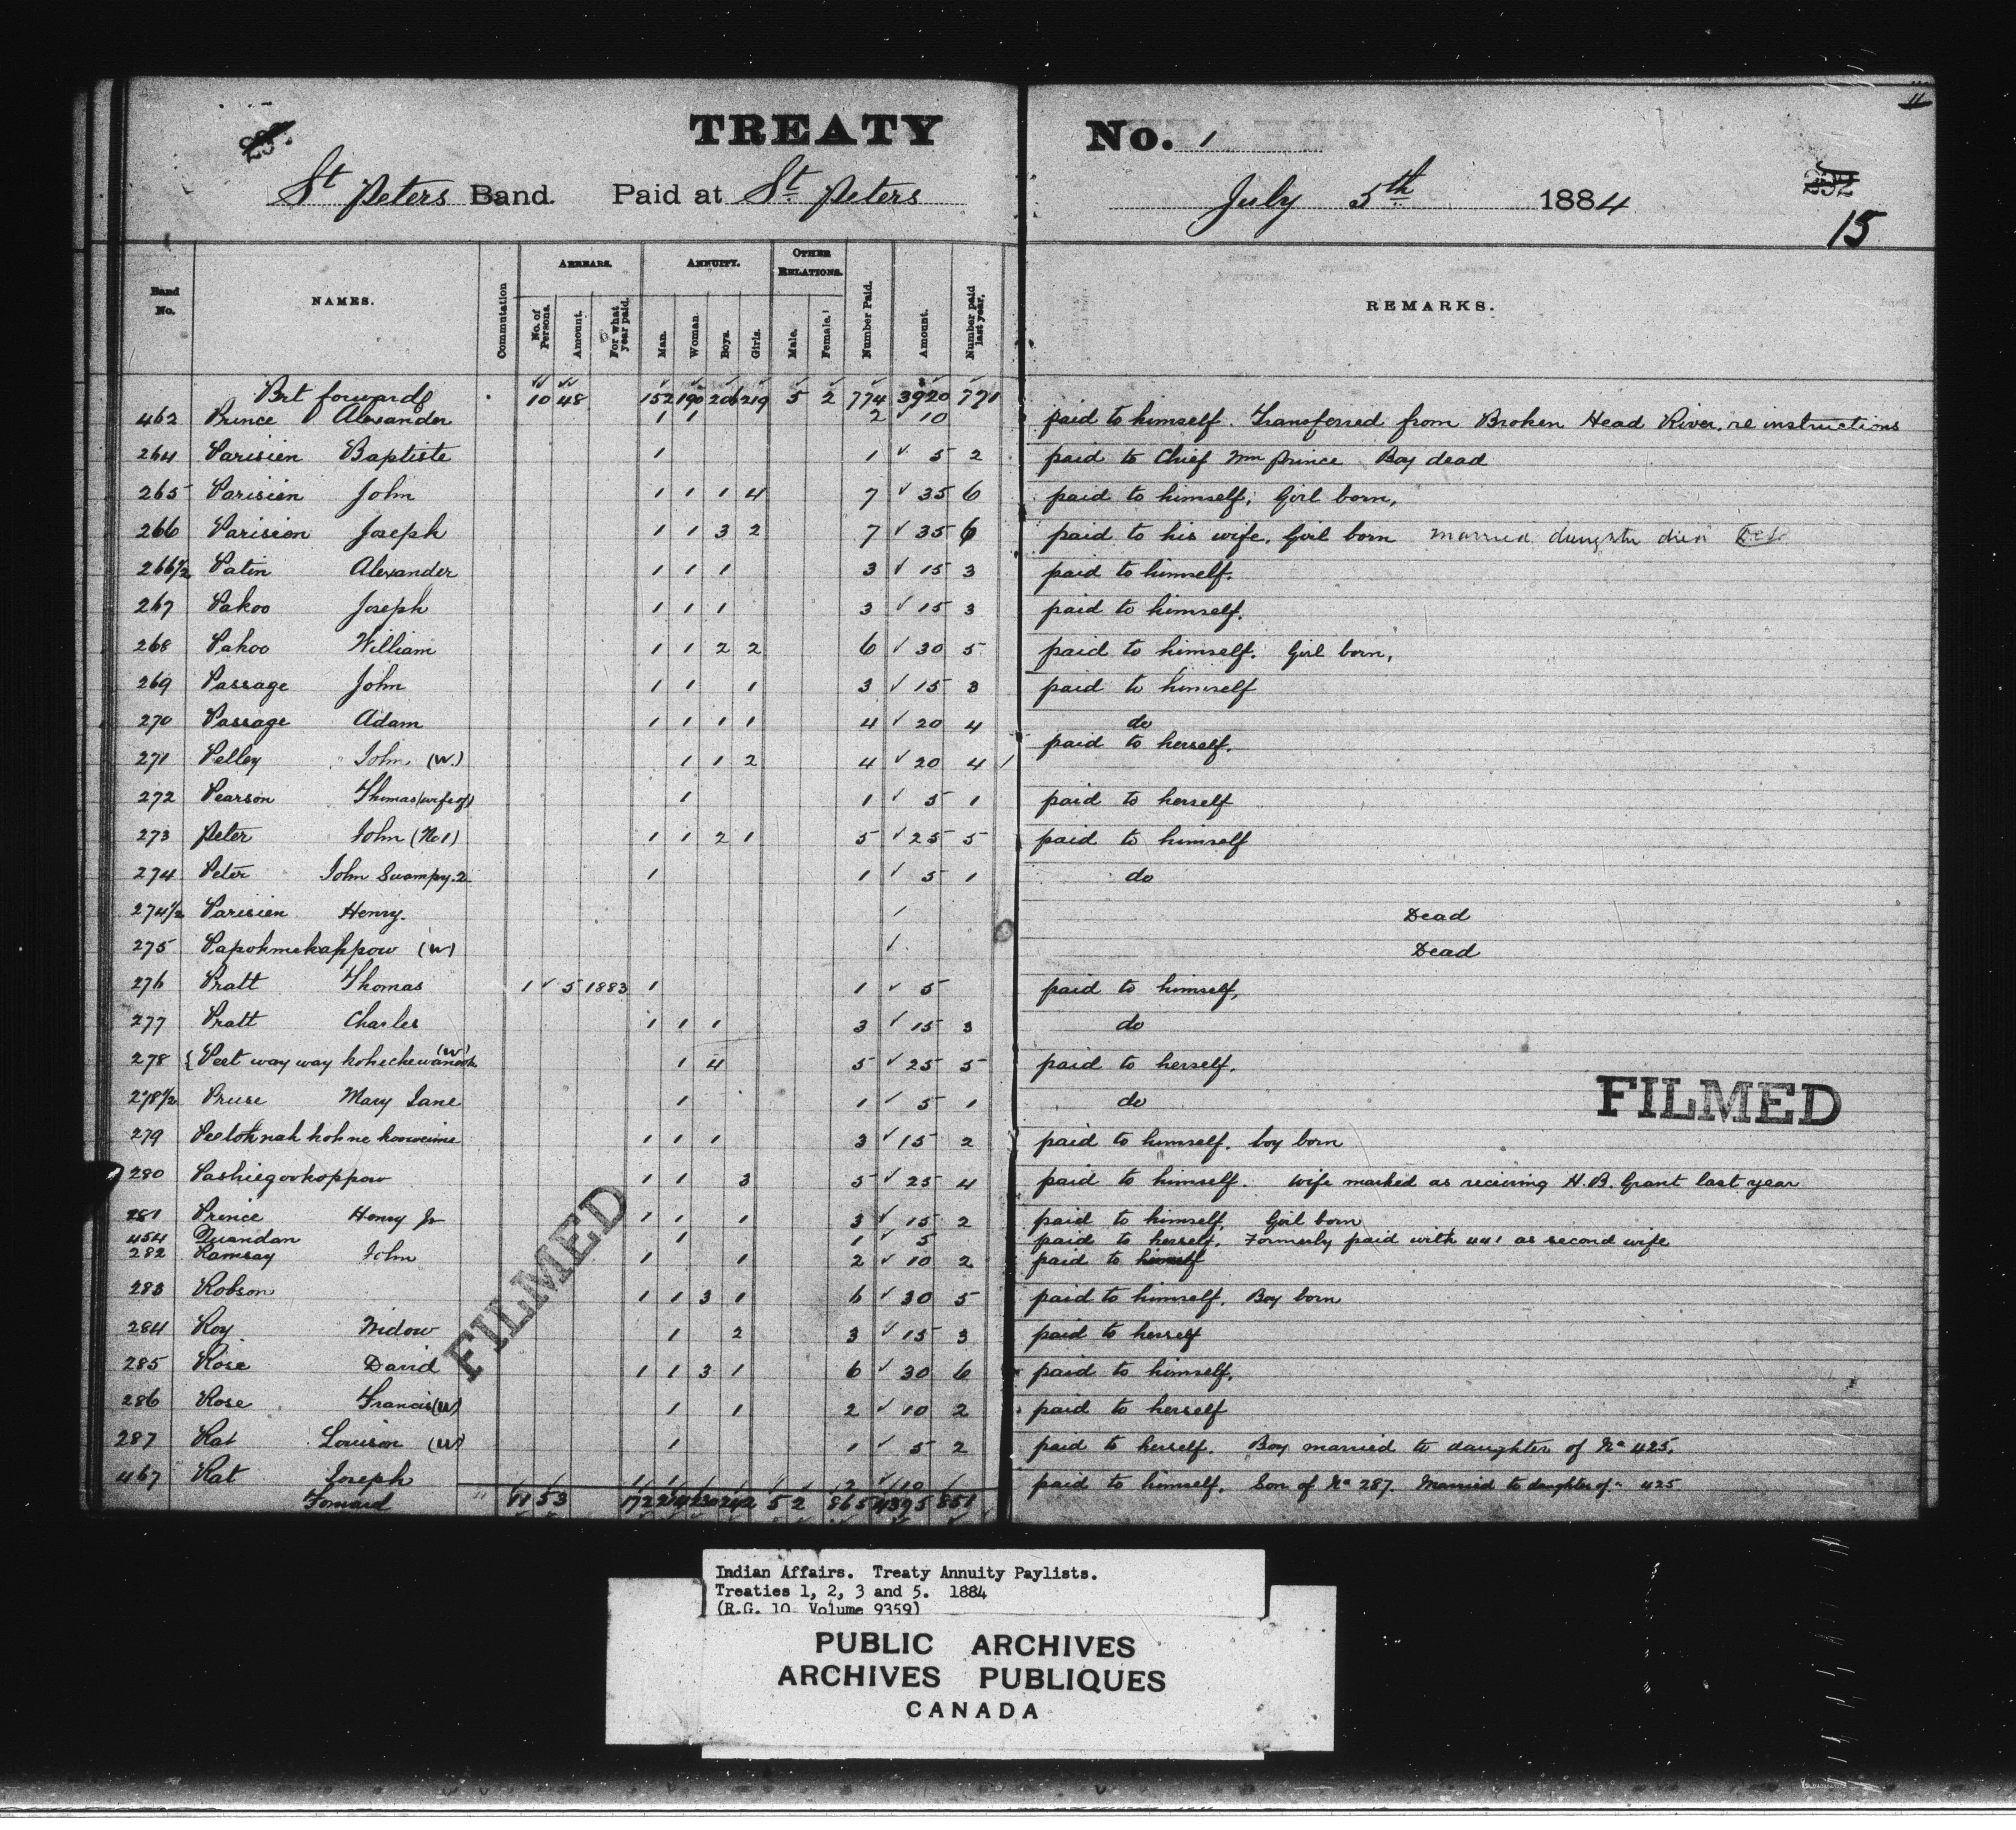 TREATY No. 1
St Peters Band. Paid at St. Peters July 5th 1884
15
Band No. NAMES. Commutation ARREARS. No. of Persons. Amount. For what year paid. ANNUITY. Man. Woman. Boys. Girls. OTHER RELATIONS. Male. Female. Number Paid. Amount. Number paid last year. REMARKS.
Brt forward 10 48 152 190 206 219 5 2 774 3920 771
462 Prince Alexander 1 1 2 10 paid to himself. Transferred from Broken Head River, re instructions
264 Parisien Baptiste 1 1 ✓ 5 2 paid to Chief Wm Prince Boy dead
265 Parisien John 1 1 1 4 7 ✓ 35 6 paid to himself, Girl born,
266 Parisien Joseph 1 1 3 2 7 ✓ 35 6 paid to his wife. Girl born married daughter died
266 1/2 Patin Alexander 1 1 1 3 ✓ 15 3 paid to himself.
267 Pakoo Joseph 1 1 1 3 ✓ 15 3 paid to himself.
268 Pakoo William 1 1 2 2 6 ✓ 30 5 paid to himself. Girl born,
269 Passage John 1 1 1 3 ✓ 15 3 paid to himself
270 Passage Adam 1 1 1 1 4 ✓ 20 4 do
271 Pelley John (W.) 1 1 2 4 ✓ 20 4 paid to herself.
272 Pearson Thomas (wife of) 1 1 ✓ 5 1 paid to herself
273 Peter John (No 1) 1 1 2 1 5 ✓ 25 5 paid to himself
274 Peter John Swampy. 2 1 1 ✓ 5 1 do
274 1/2 Parisien Henry. ✓ Dead
275 Papohmekahpow (W) ✓ Dead
276 Pratt Thomas 1 ✓ 5 1883 1 1 ✓ 5 paid to himself,
277 Pratt Charles 1 1 1 3 ✓ 15 3 do
278 { Peet way way (W) 1 4 5 ✓ 25 5 paid to herself.
278 1/2 Pruse Mary Jane 1 1 ✓ 5 1 do
279 1 1 1 3 ✓ 15 2 paid to himself. boy born
280 Pashiegookoppow 1 1 3 5 ✓ 25 4 paid to himself. Wife marked as recieving H.B. Grant last year
281 Prince Henry Jr 1 1 1 3 ✓ 15 2 paid to himself. Girl born
454 Quandan 1 1 ✓ 5 paid to herself. Formerly paid with 441 as second wife
282 Ramsay John 1 1 2 ✓ 10 2 paid to himself
283 Robson 1 1 3 1 6 ✓ 30 5 paid to himself. Boy born
284 Roy Widow 1 2 3 ✓ 15 3 paid to herself
285 Rose David 1 1 3 1 6 ✓ 30 6 paid to himself,
286 Rose Francis (W) 1 1 2 ✓ 10 2 paid to herself
287 Rat Louison (W) 1 1 ✓ 5 2 paid to herself. Boy married to daughter of No 425.
467 Rat Joseph 1 1 2 ✓ 10 paid to himself. Son of No 287. Married to daughter of " 425
Forward 11 53 172 214 230 242 5 2 865 4395 851
FILMED
FILMED
Indian Affairs. Treaty Annuity Paylists.
Treaties 1, 2, 3 and 5. 1884
(R.G. 10 Volume 9359)
PUBLIC ARCHIVES
ARCHIVES PUBLIQUES
CANADA